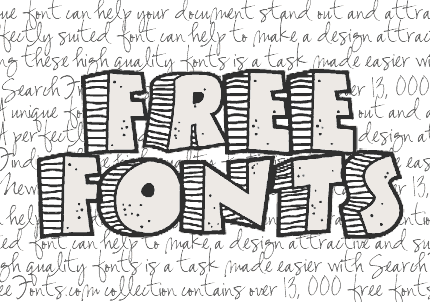 ue font can help your document stand out and attra
fectly suited font can help to make a design attracti
ng these high quality fonts is a task made easier wi
Search Fr
er 13, 000
FREE
A unique fo
out and a
A perfectl
design at
FONTS
Find
new
r 13,
help
ed font can help to make a design attractive and su
gh quality fonts is a task made easier with Search
ee Fonts.com collection contains over 13, 000 free fonts